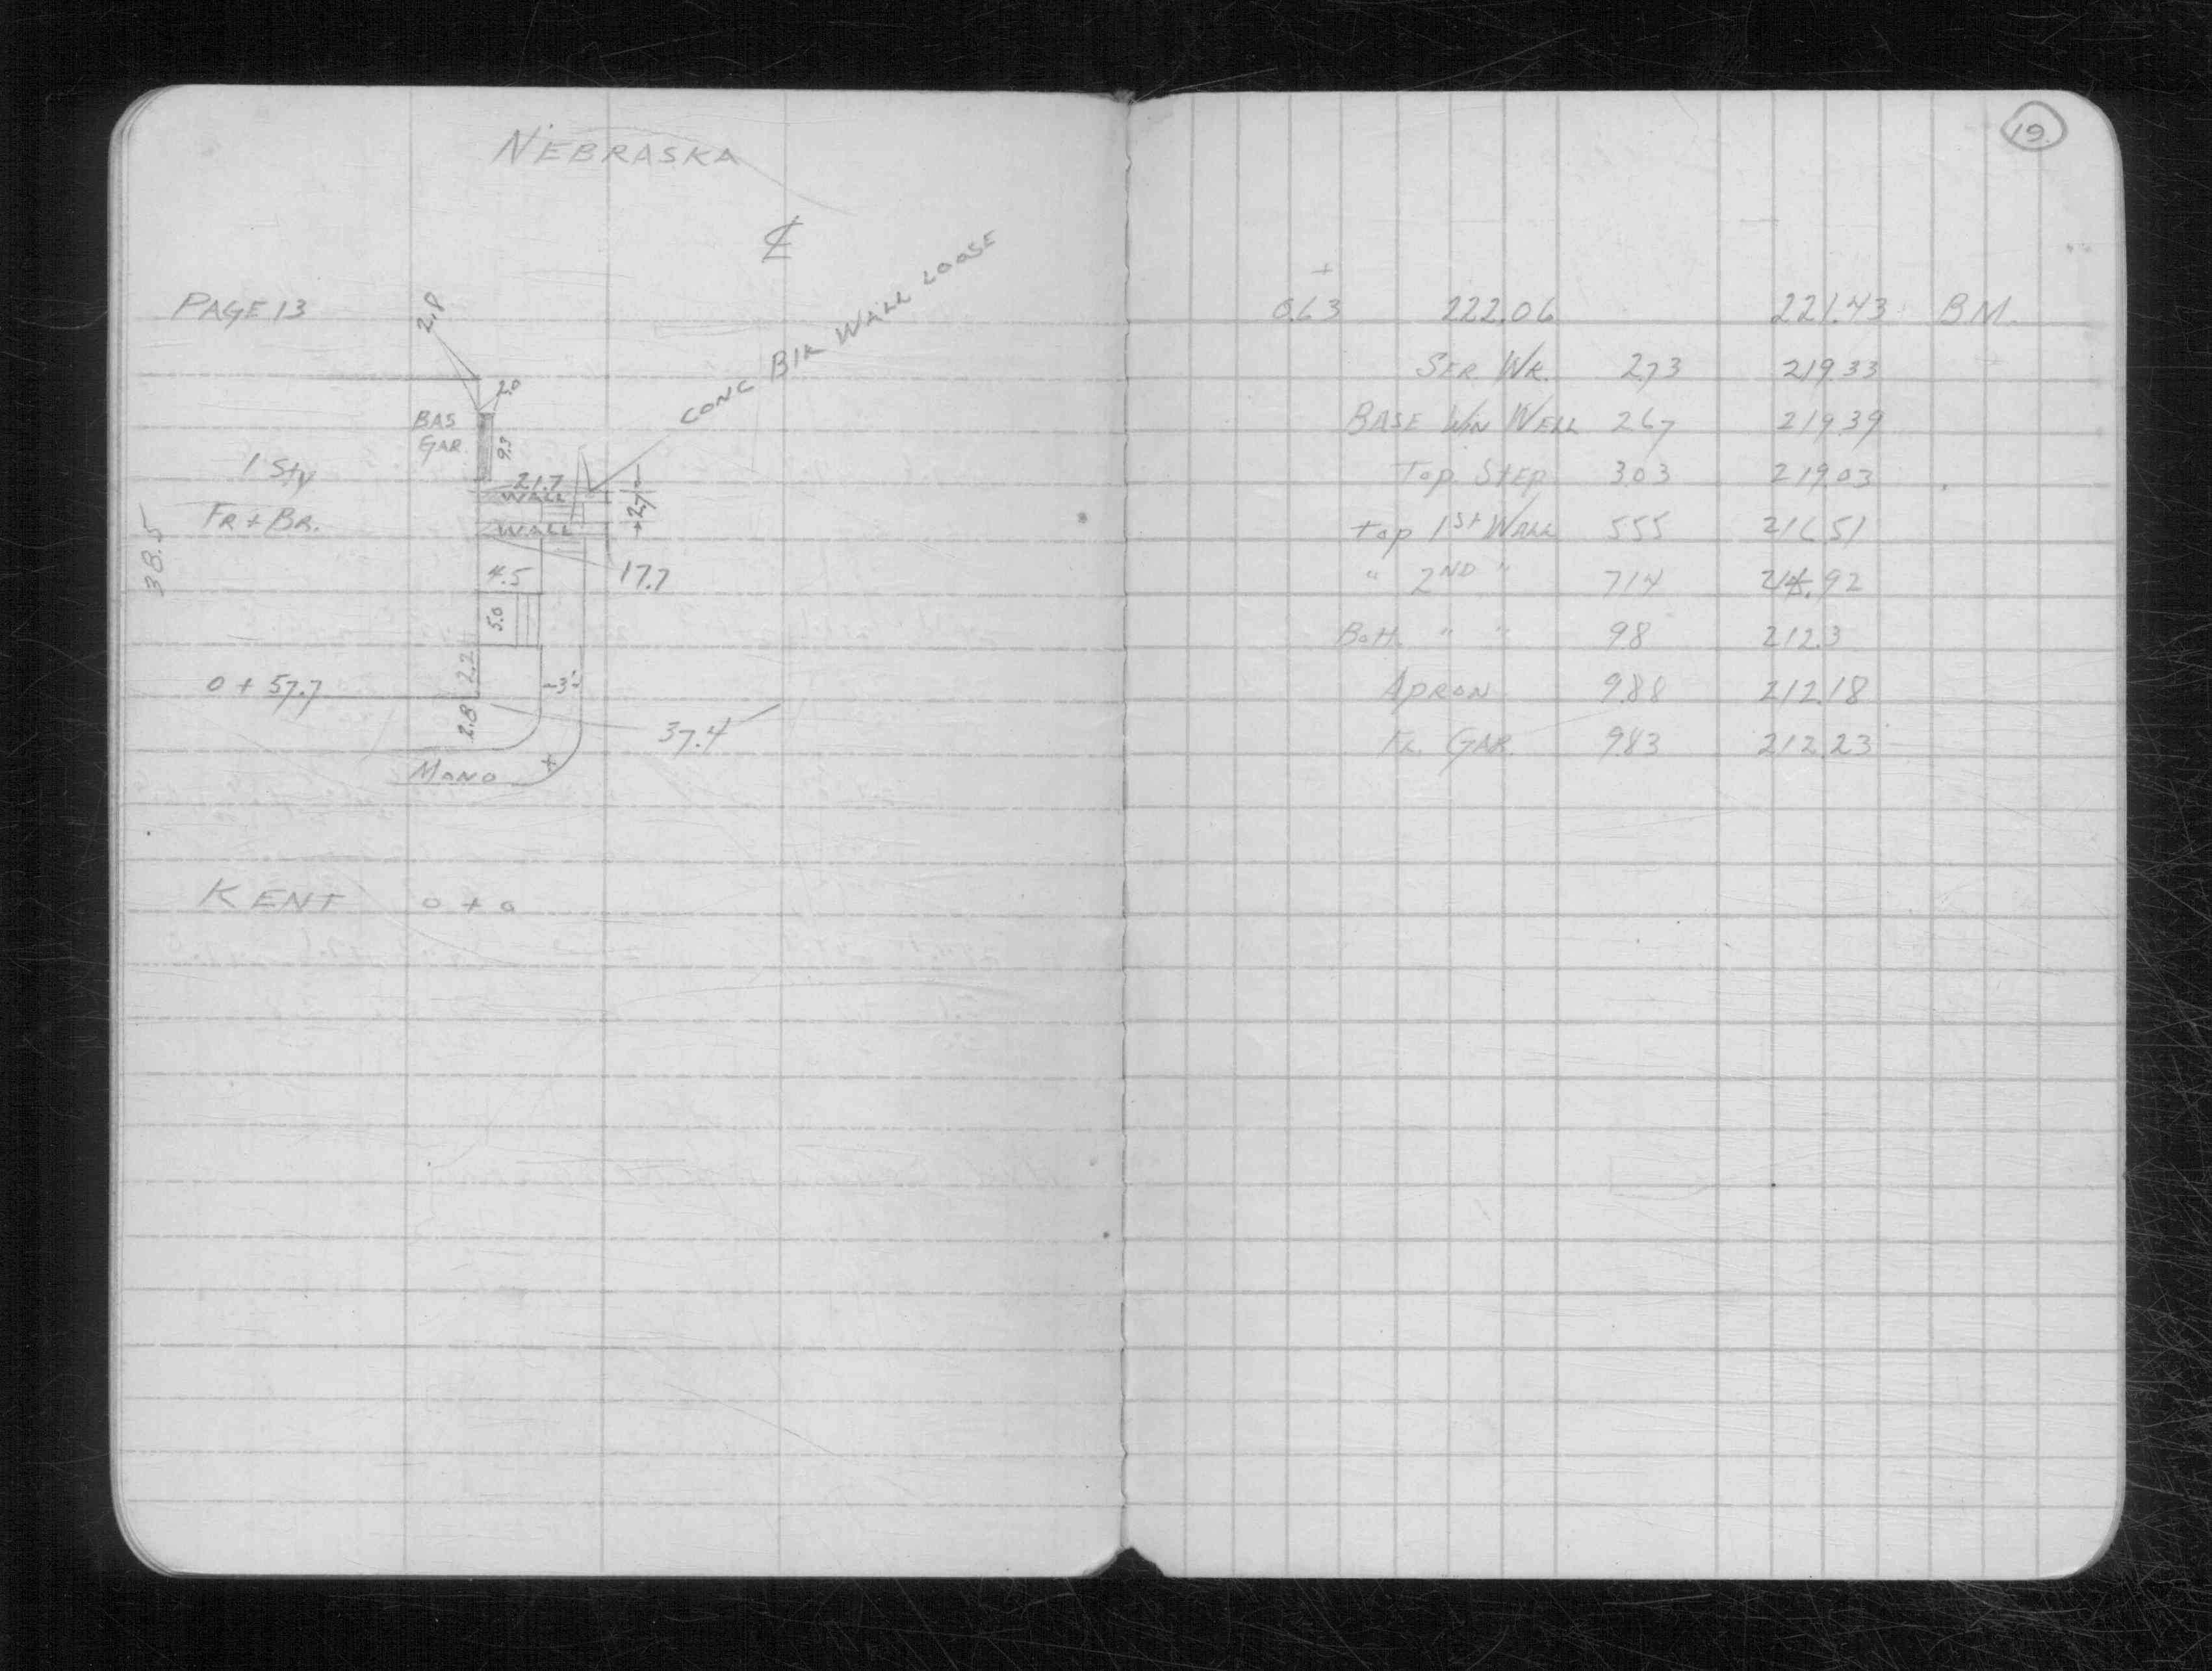 NEBRASKA
℄
PAGE 13
2.8
CONC BLK WALL LOOSE
2.0
BAS
GAR.
9.3
1 Sty
21.7
WALL
2.7
FR + BR.
WALL
38.5
4.5
17.7
5.0
2.2
0 + 57.7
-3'-
2.8
37.4
MONO
KENT 0 + 0
19.
+
0.63 222.06 221.43 B.M.
SER. WK. 2.73 219.33
BASE WIN WELL 267 219.39
Top. StEP 303 219.03
top 1St WALL 555 216.51
" 2ND " 714 214.92
Bott. " " 98 212.3
APRON 988 212.18
FL. GAR. 983 212.23